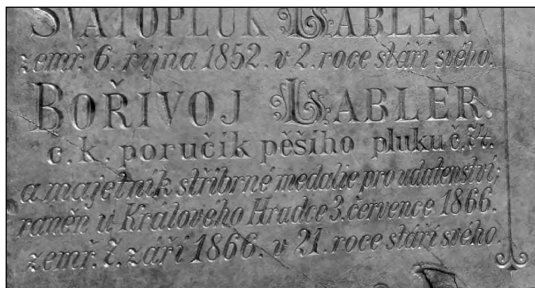 SVATOPLUK LABLER
zemř. 6. října 1852. v 2. roce stáří svého.
BOŘIVOJ LABLER.
c. k. poručík pěšího pluku č. 74.
a majetník stříbrné medalie pro udatenství;
raněn u Králového Hradce 3. července 1866.
zemř. 7. září 1866. v 21. roce stáří svého.